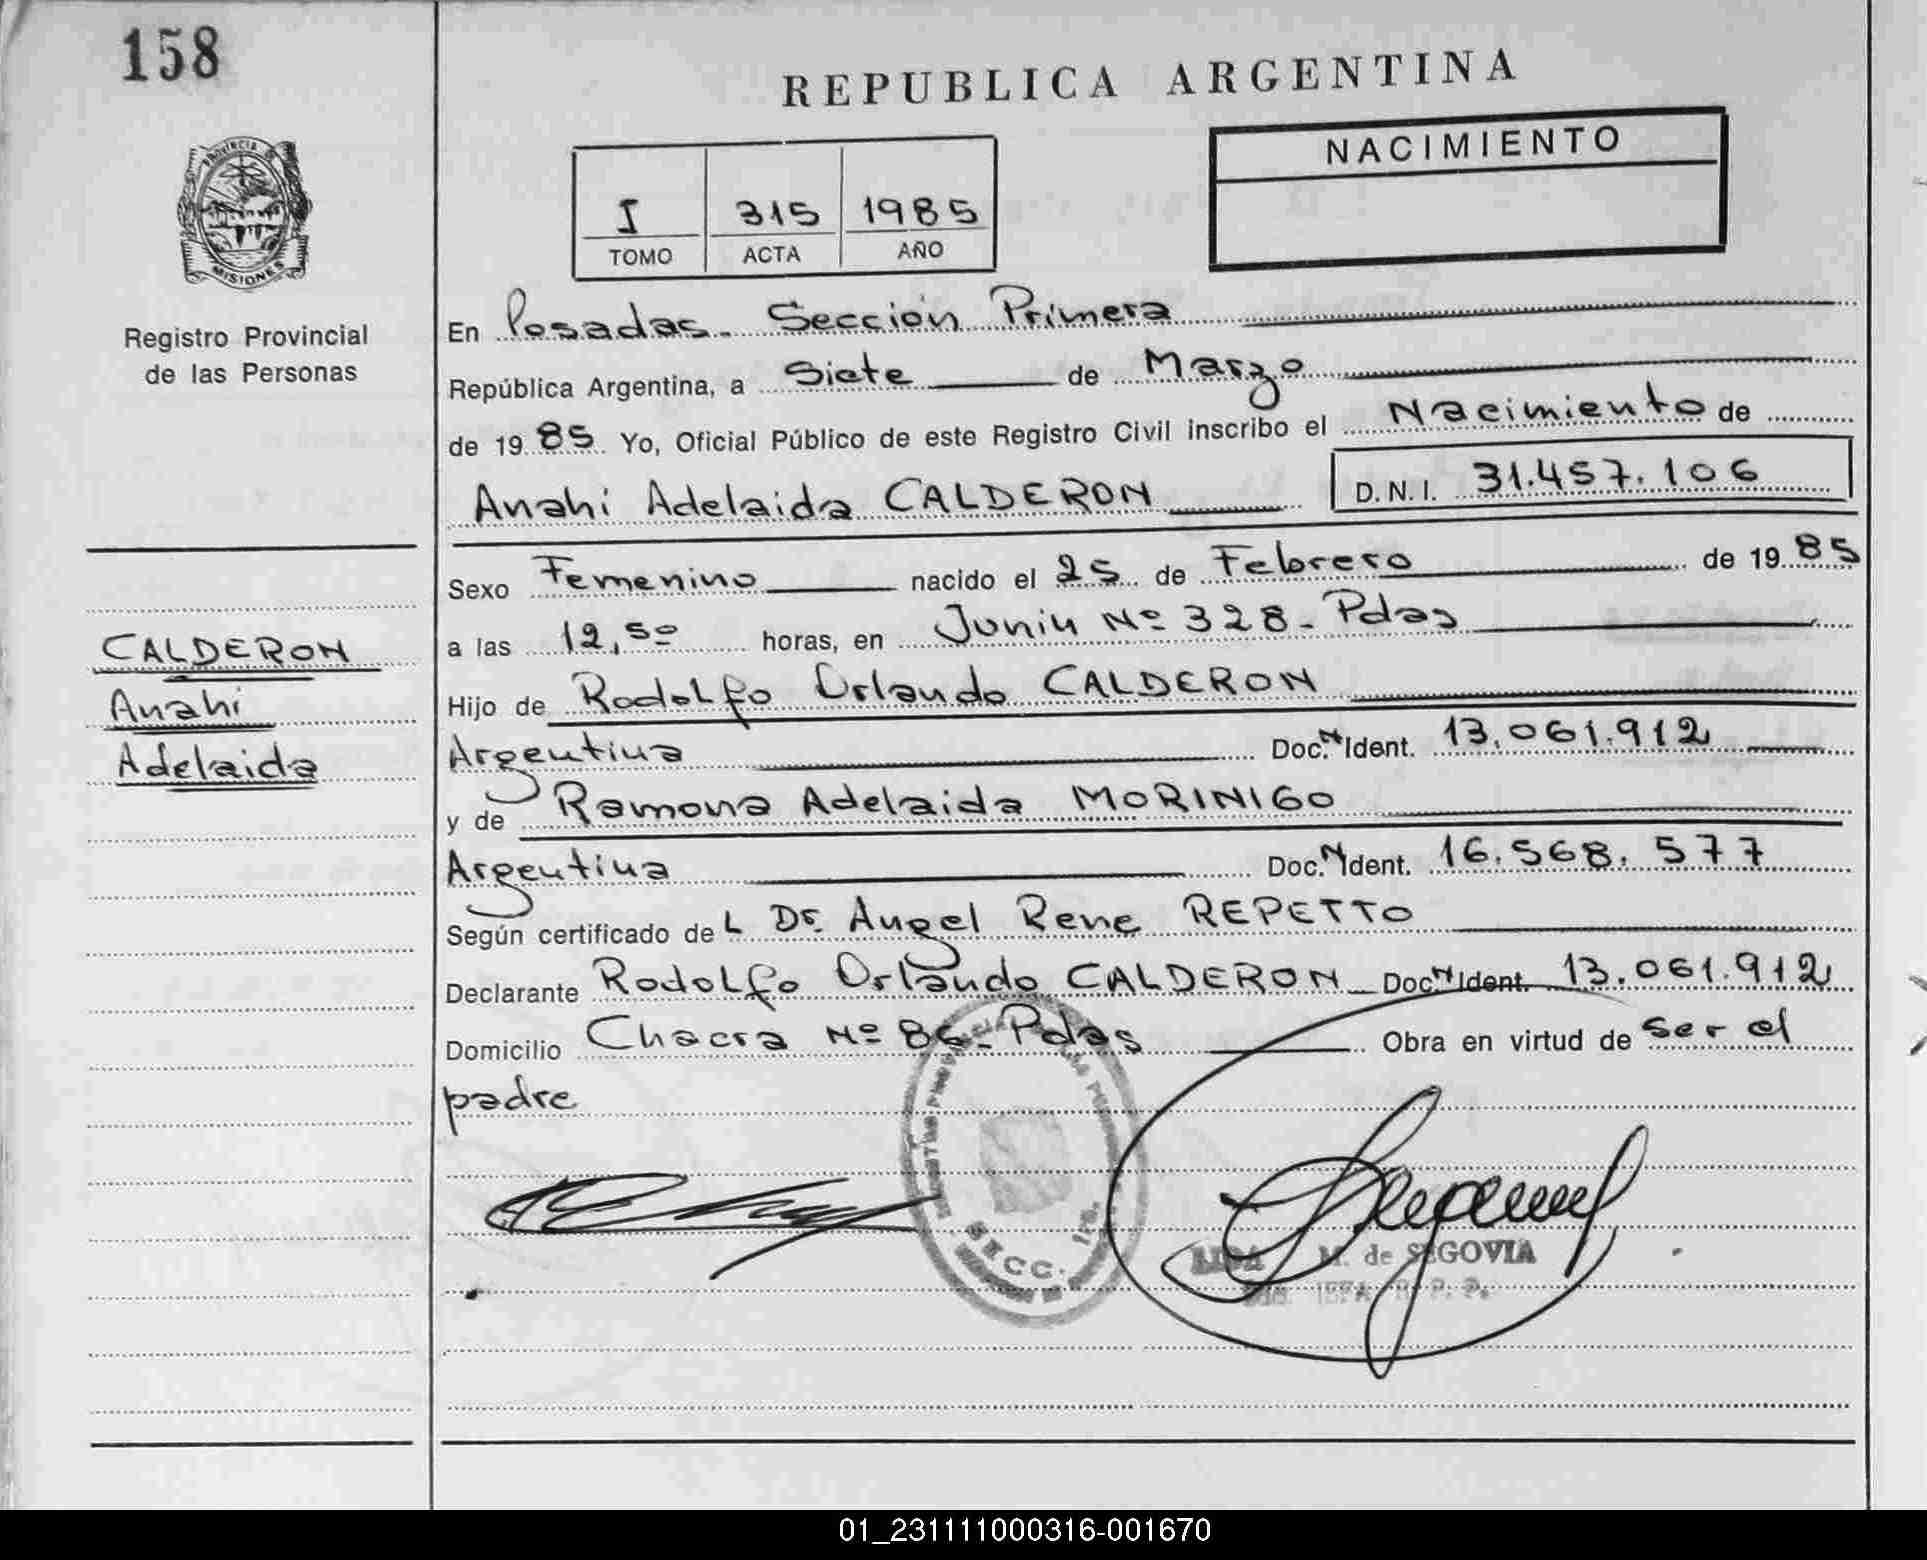 158
REPUBLICA ARGENTINA
PROVINCIA DE
MISIONES
Registro Provincial
de las Personas
I 315 1985
TOMO ACTA AÑO
NACIMIENTO
En Posadas. Sección Primera
República Argentina, a Siete de Marzo
de 1985 Yo, Oficial Público de este Registro Civil inscribo el Nacimiento de
Anahi Adelaida CALDERON D.N.I. 31.457.106
Sexo Femenino nacido el 25 de Febrero de 1985
a las 12,50 horas, en Junin Nº 328 - Pdas
Hijo de Rodolfo Orlando CALDERON
Argentina Doc. N Ident. 13.061.912
y de Ramona Adelaida MORINIGO
Argentina Doc. N Ident. 16.568.577
Según certificado del Dr. Angel Rene REPETTO
Declarante Rodolfo Orlando CALDERON Doc. N Ident. 13.061.912
Domicilio Chacra Nº 86 - Pdas Obra en virtud de ser el
padre
CALDERON
Anahi
Adelaida
SECC. 1ra.
M. de SEGOVIA
01_231111000316-001670